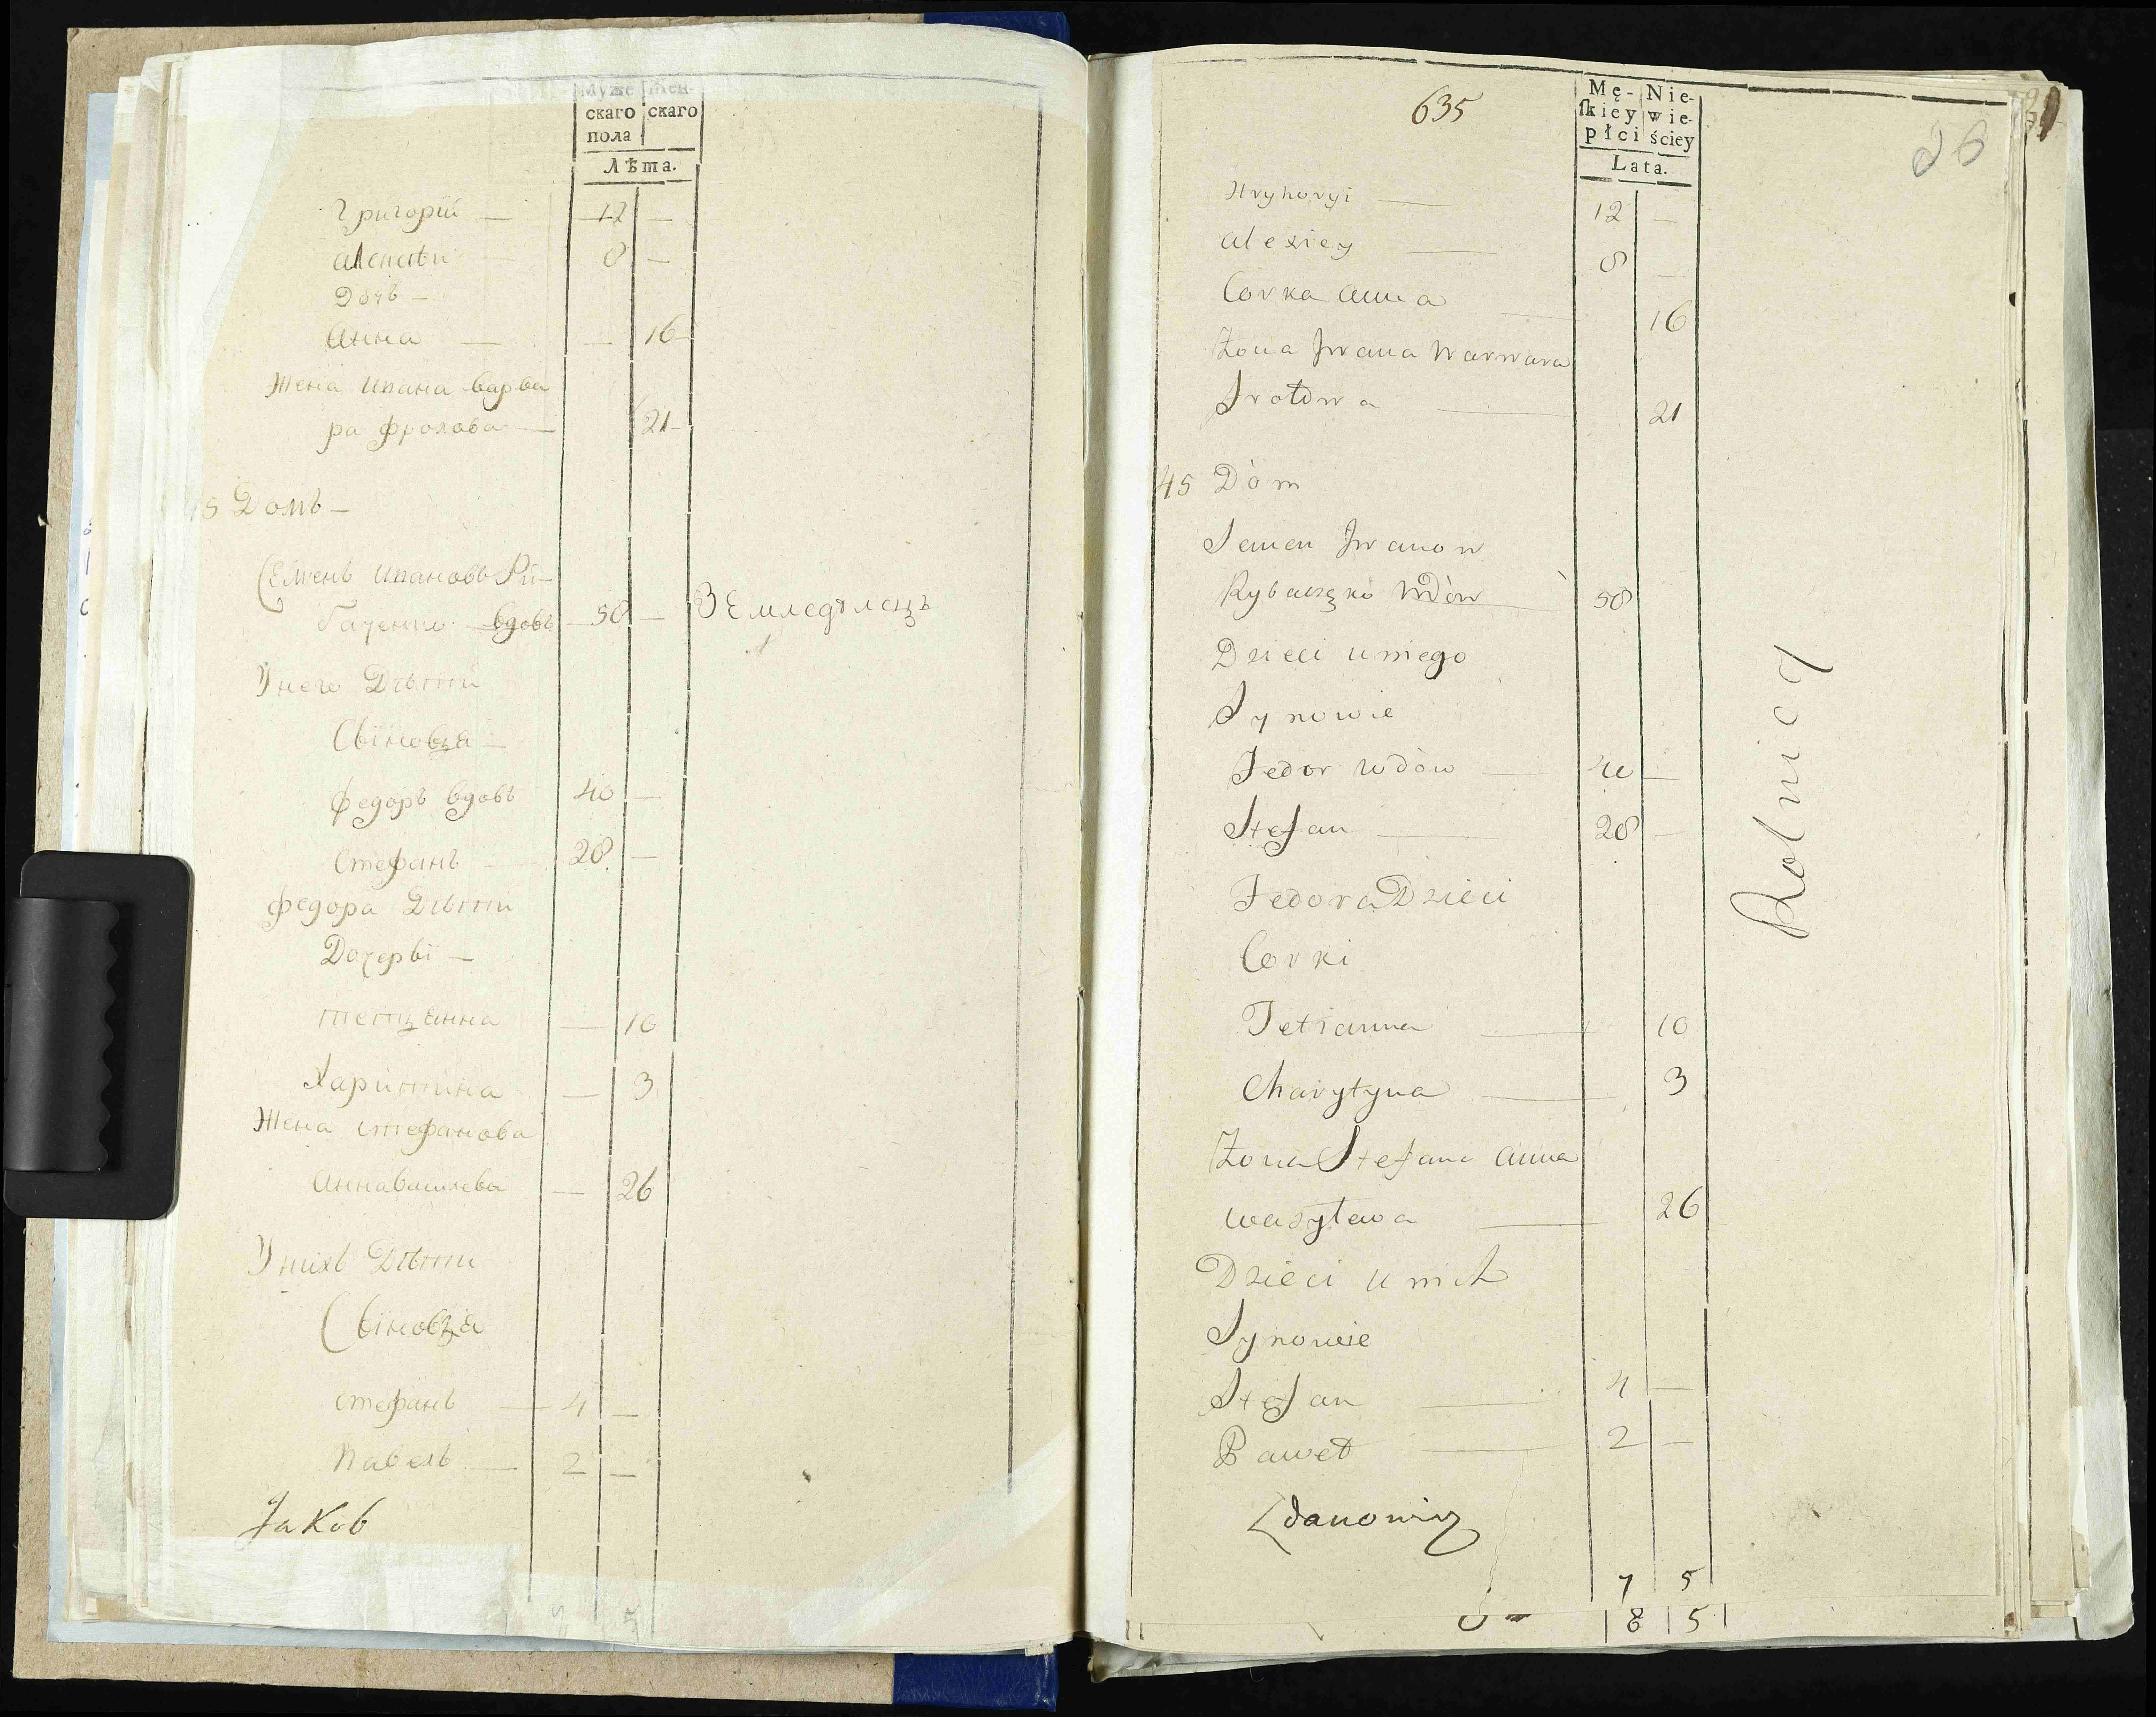 Муже
скаго
пола
жен-
скаго
Лѣта.
Григорій — 12 —
Алексѣй — 8 —
Дочь —
Анна — — 16
Жена Ивана Варва
ра Фролова — 21
5 Домъ —
Семенъ Ивановъ Ри-
баченко вдовъ 58 — Земледѣлецъ
У него Дѣти
Сыновья —
Федоръ вдовъ 40 —
Стефанъ — 28 —
Федора Дѣти
Дочеры —
Тетіанна — 10
Харитина — 3
Жена Стефанова
Анна Василева — 26
У нихъ Дѣти
Сыновья
Стефанъ — 4 —
Павелъ — 2 —
Jakob
635
26
Mę-
ſkiey
płci
Nie-
wie-
ściey
Lata.
Hryhoryi — 12 —
Alexiey — 8 —
Corka Anna — 16
Żona Jwana Warwara
Frołowa — 21
45 Dòm
Semen Jwanow
Rybaczęko Wdòw 58
Dzieci u niego
Synowie
Fedor wdòw — 40 —
Stefan — 28 —
Fedora Dzieci
Corki
Tetianna — 10
Charytyna — 3
Żona Stefana Anna
Wasylewa — 26
Dzieci u nich
Synowie
Stefan — 4 —
Paweł — 2 —
Zdanowicz
7 5
8 5
Rolnicy